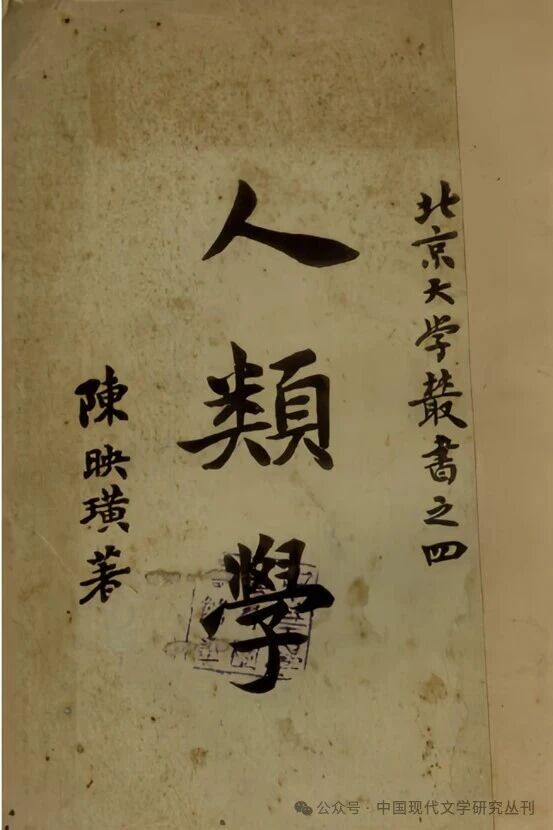 北京大学叢書之四
人類學
陳映璜著
公众号·中国现代文学研究丛刊